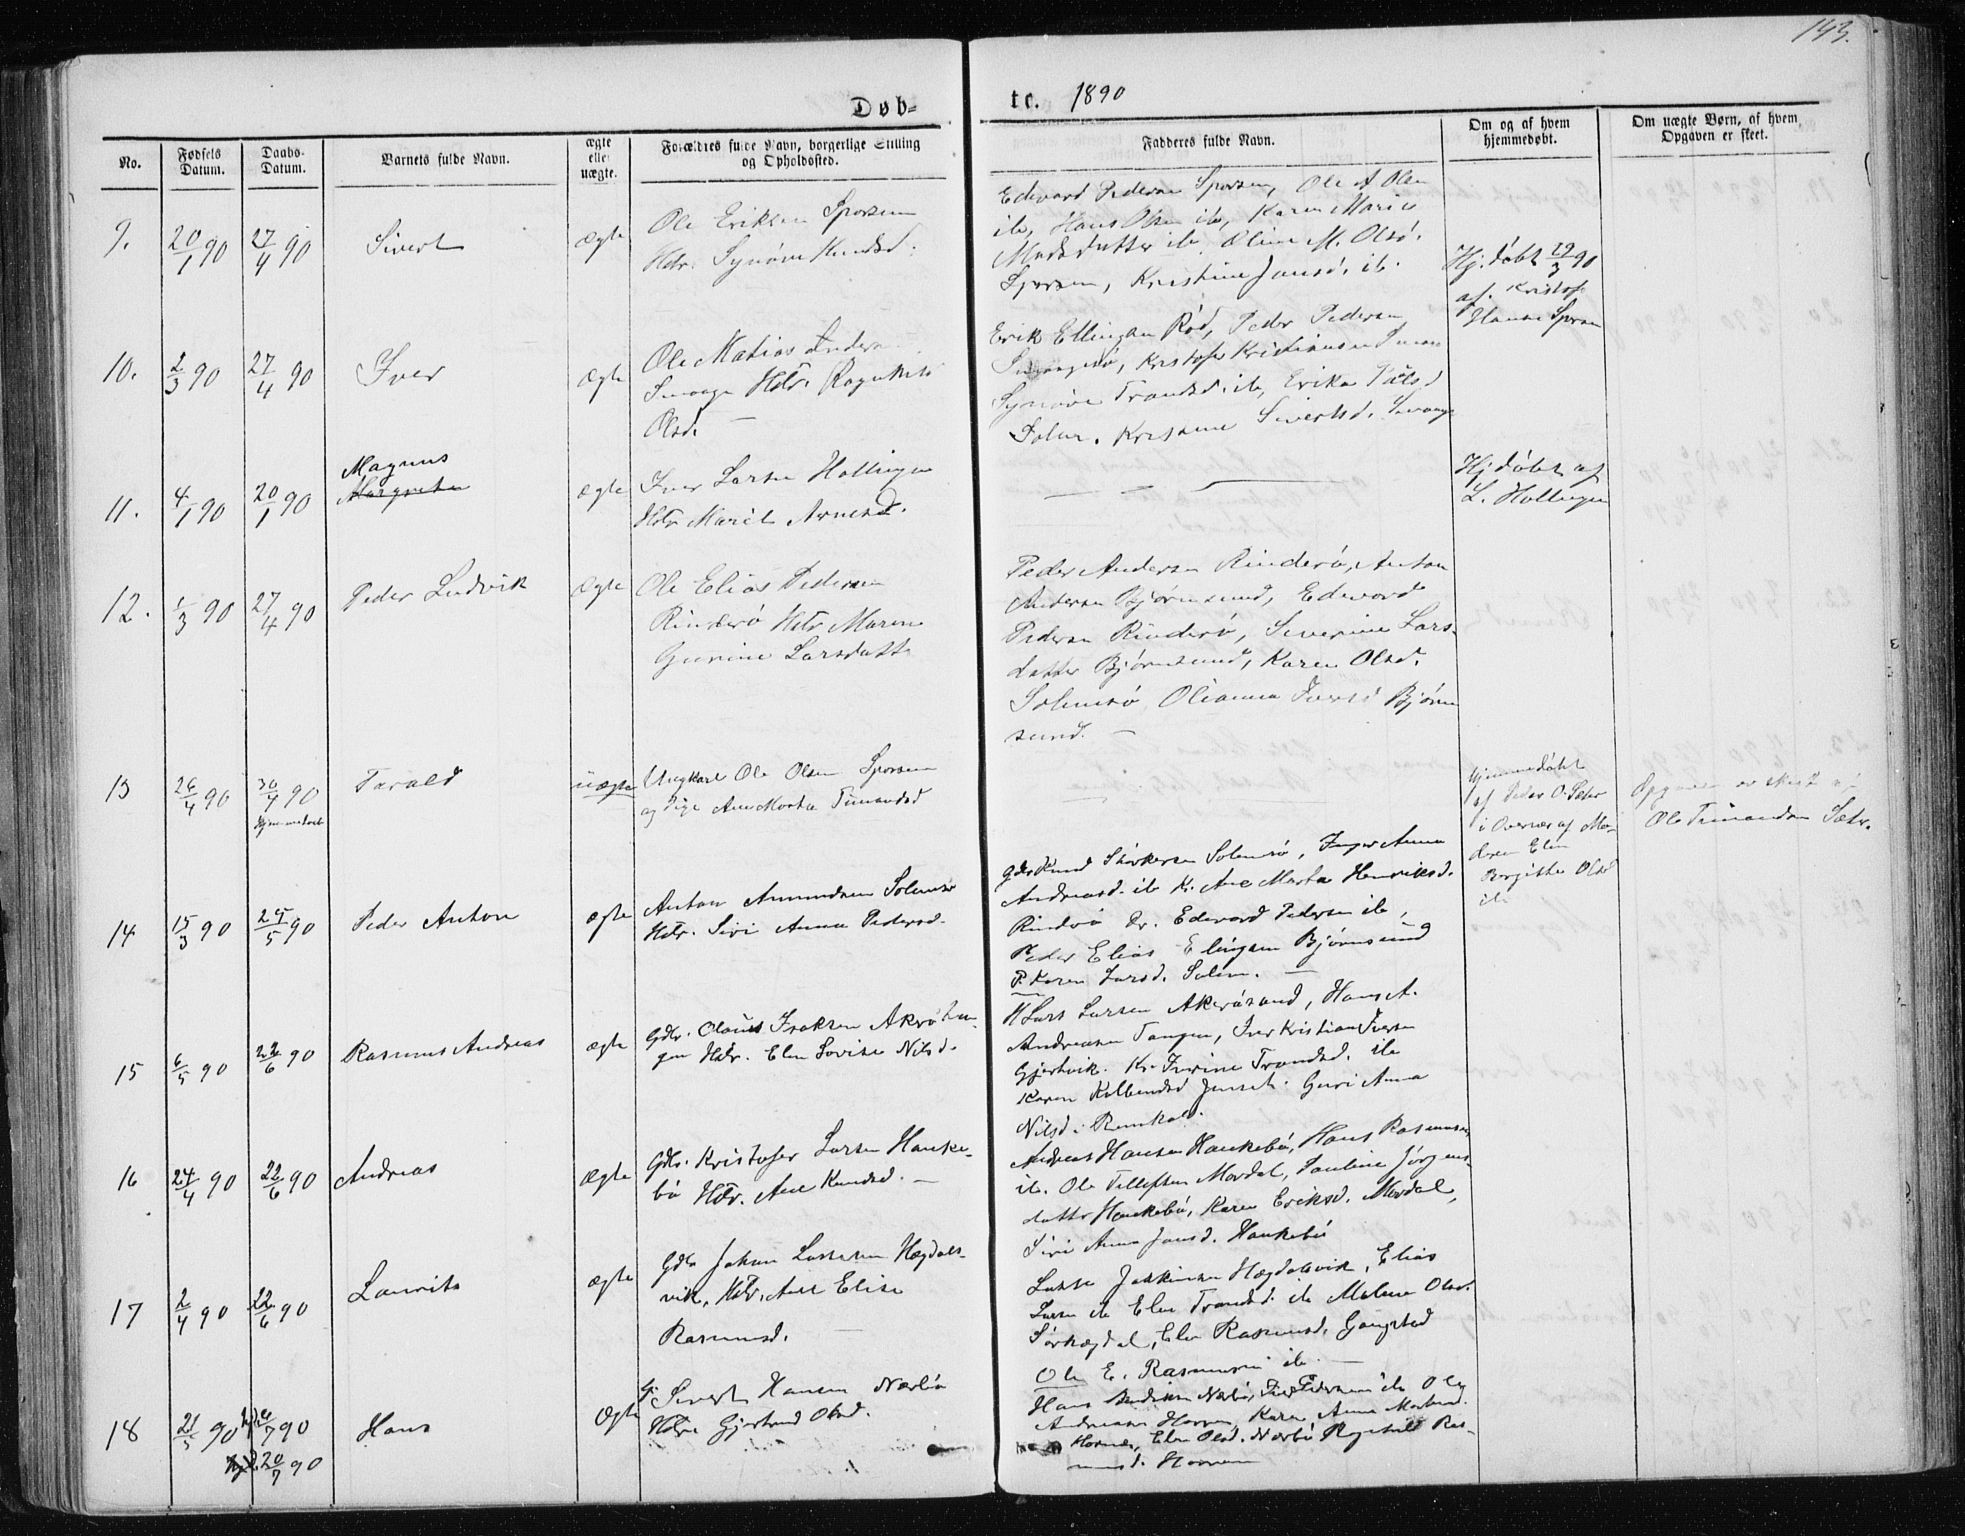 143.
Døb-
te. 1890
No.
Fødsels
Datum.
Daabs-
Datum.
Barnets fulde Navn.
ægte
eller
uægte.
Forældres fulde Navn, borgerlige Stilling
og Opholdssted.
Fadderes fulde Navn.
Om og af hvem
hjemmedøbt.
Om uægte Børn, af hvem
Opgaven er skeet.
9. 20/1 90 27/4 90 Sivert ægte
Ole Eriksen Sporsem
Hstr. Synøve Knudsd.
Edvard Pedersen Sporsem, Ole A Olsen
ib, Hans Olsen ib, Karen Marie
Madsdatter ib Oline M. Olsd.
Sporsem, Kristine Jansd. ib.
Hj. døbt 29/3 90
af. Kristof
Hansen Sporsem
10. 2/3 90 27/4 90 Iver ægte
Ole Matias Anders
Smaage Hstr. Ragnhild
Olsd. —
Erik Ellingsen Rød, Peder Pedersen
Kristofer Kristiansen
Synøve Trondsd. ib, Erika Pålsd
Sivertsd.
11. 4/1 90 20/1 90 Magnus
Margrethe
ægte
Iver Larsen Hollingen
Hstr Marit Arnesd.
Hj døbt af
L. Hollingen
12. 1/3 90 27/4 90 Peder Ludvik ægte
Ole Elias Pedersen
Rinderø Hstr Maren
Gurine Larsdatter
Peder Andersen Rinderø, Anton
Andersen Bjørnsund, Edevard
Pedersen Rinderø, Severine Lars-
datter Bjørnsund, Karen Olsd.
Solemsø Olianna Iversd Bjørn
sund. —
13 26/4 90 30/4 90 Tarald uægte
Hjemmedøbt
Ungkarl Ole Olsen Sporsem
og Pige Ane Marta Timandsd
Hjemmedøbt
af Peder O. Sæter
i Overvær af Mo-
deren Elen
Birgitte Olsd
ib
Opgaven er skeet af
Ole Timandsen Sæter.
14 15/3 90 25/5 90 Peder Anton ægte
Anton Amundsen Solemsø
Hstr. Siri Anna Pedersd.
Gdbr Knud Størkersen Solemsø, Inger Anna
Andreasd. ib K. Ane Marta Henriksd.
Rinderø Dr. Edevard Pedersen ib,
Peder Elias Elingsen Bjørnsund
P. Karen Larsd. Solem. —
15 6/5 90 22/6 90 Rasmus Andreas ægte
Gdbr. Olaus Isaksen Akrø
gen Hstr. Elen Lovise Nilsd.
Lars Larsen Akerøsund, Hans A.
Andreasen Tangen, Iver Kristian Iversen
Gjertvik. K. Iverine Trondsd. ib
Karen Kolbensd Jenset. Guri Anna
Nilsd.
16 24/4 90 22/6 90 Andreas ægte
Gdbr. Kristofer Larsen Hauke-
bø Hstr. Ane Knudsd. —
Andreas Hansen Haukebø, Hans Rasmussen
ib. Ole Tellefsen Mordal, Pauline Jørgens-
datter Haukebø, Karen Eriksd. Mordal,
Siri Anna Jansd. Haukebø
17 2/4 90 22/6 90 Laurits ægte
Gdbr Johan Lassesen Hægdals-
vik, Hstr. Ane Elise
Rasmusd. —
Lasse Joakimsen Hægdalsvik, Elias
Larsen ib Elen Trondsd. ib Malene Olsd.
Sørhægdal, Elen Rasmusd. Gangstad
Ole E. Rasmussen ib. —
18 21/5 90 90 Hans ægte
20/7 90
G. Sivert Hansen Nærbø
Hstr. Gjertrud Olsd.
Hans Nærbø, Iver Pedersen ib Ole
Andreasen Hornæs, Karen Anna
Hornæs, Elen Olsd. Nærbø Ragnhild Ras-
musd. Hornæs